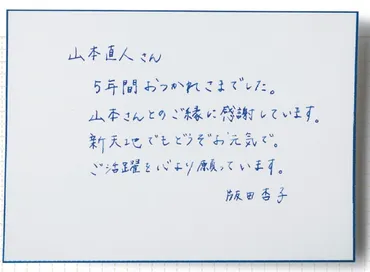 山本直人さん
5年間おつかれさまでした。
山本さんとのご縁に感謝しています。
新天地でもどうぞお元気で。
ご活躍を心より願っています。
飯田杏子